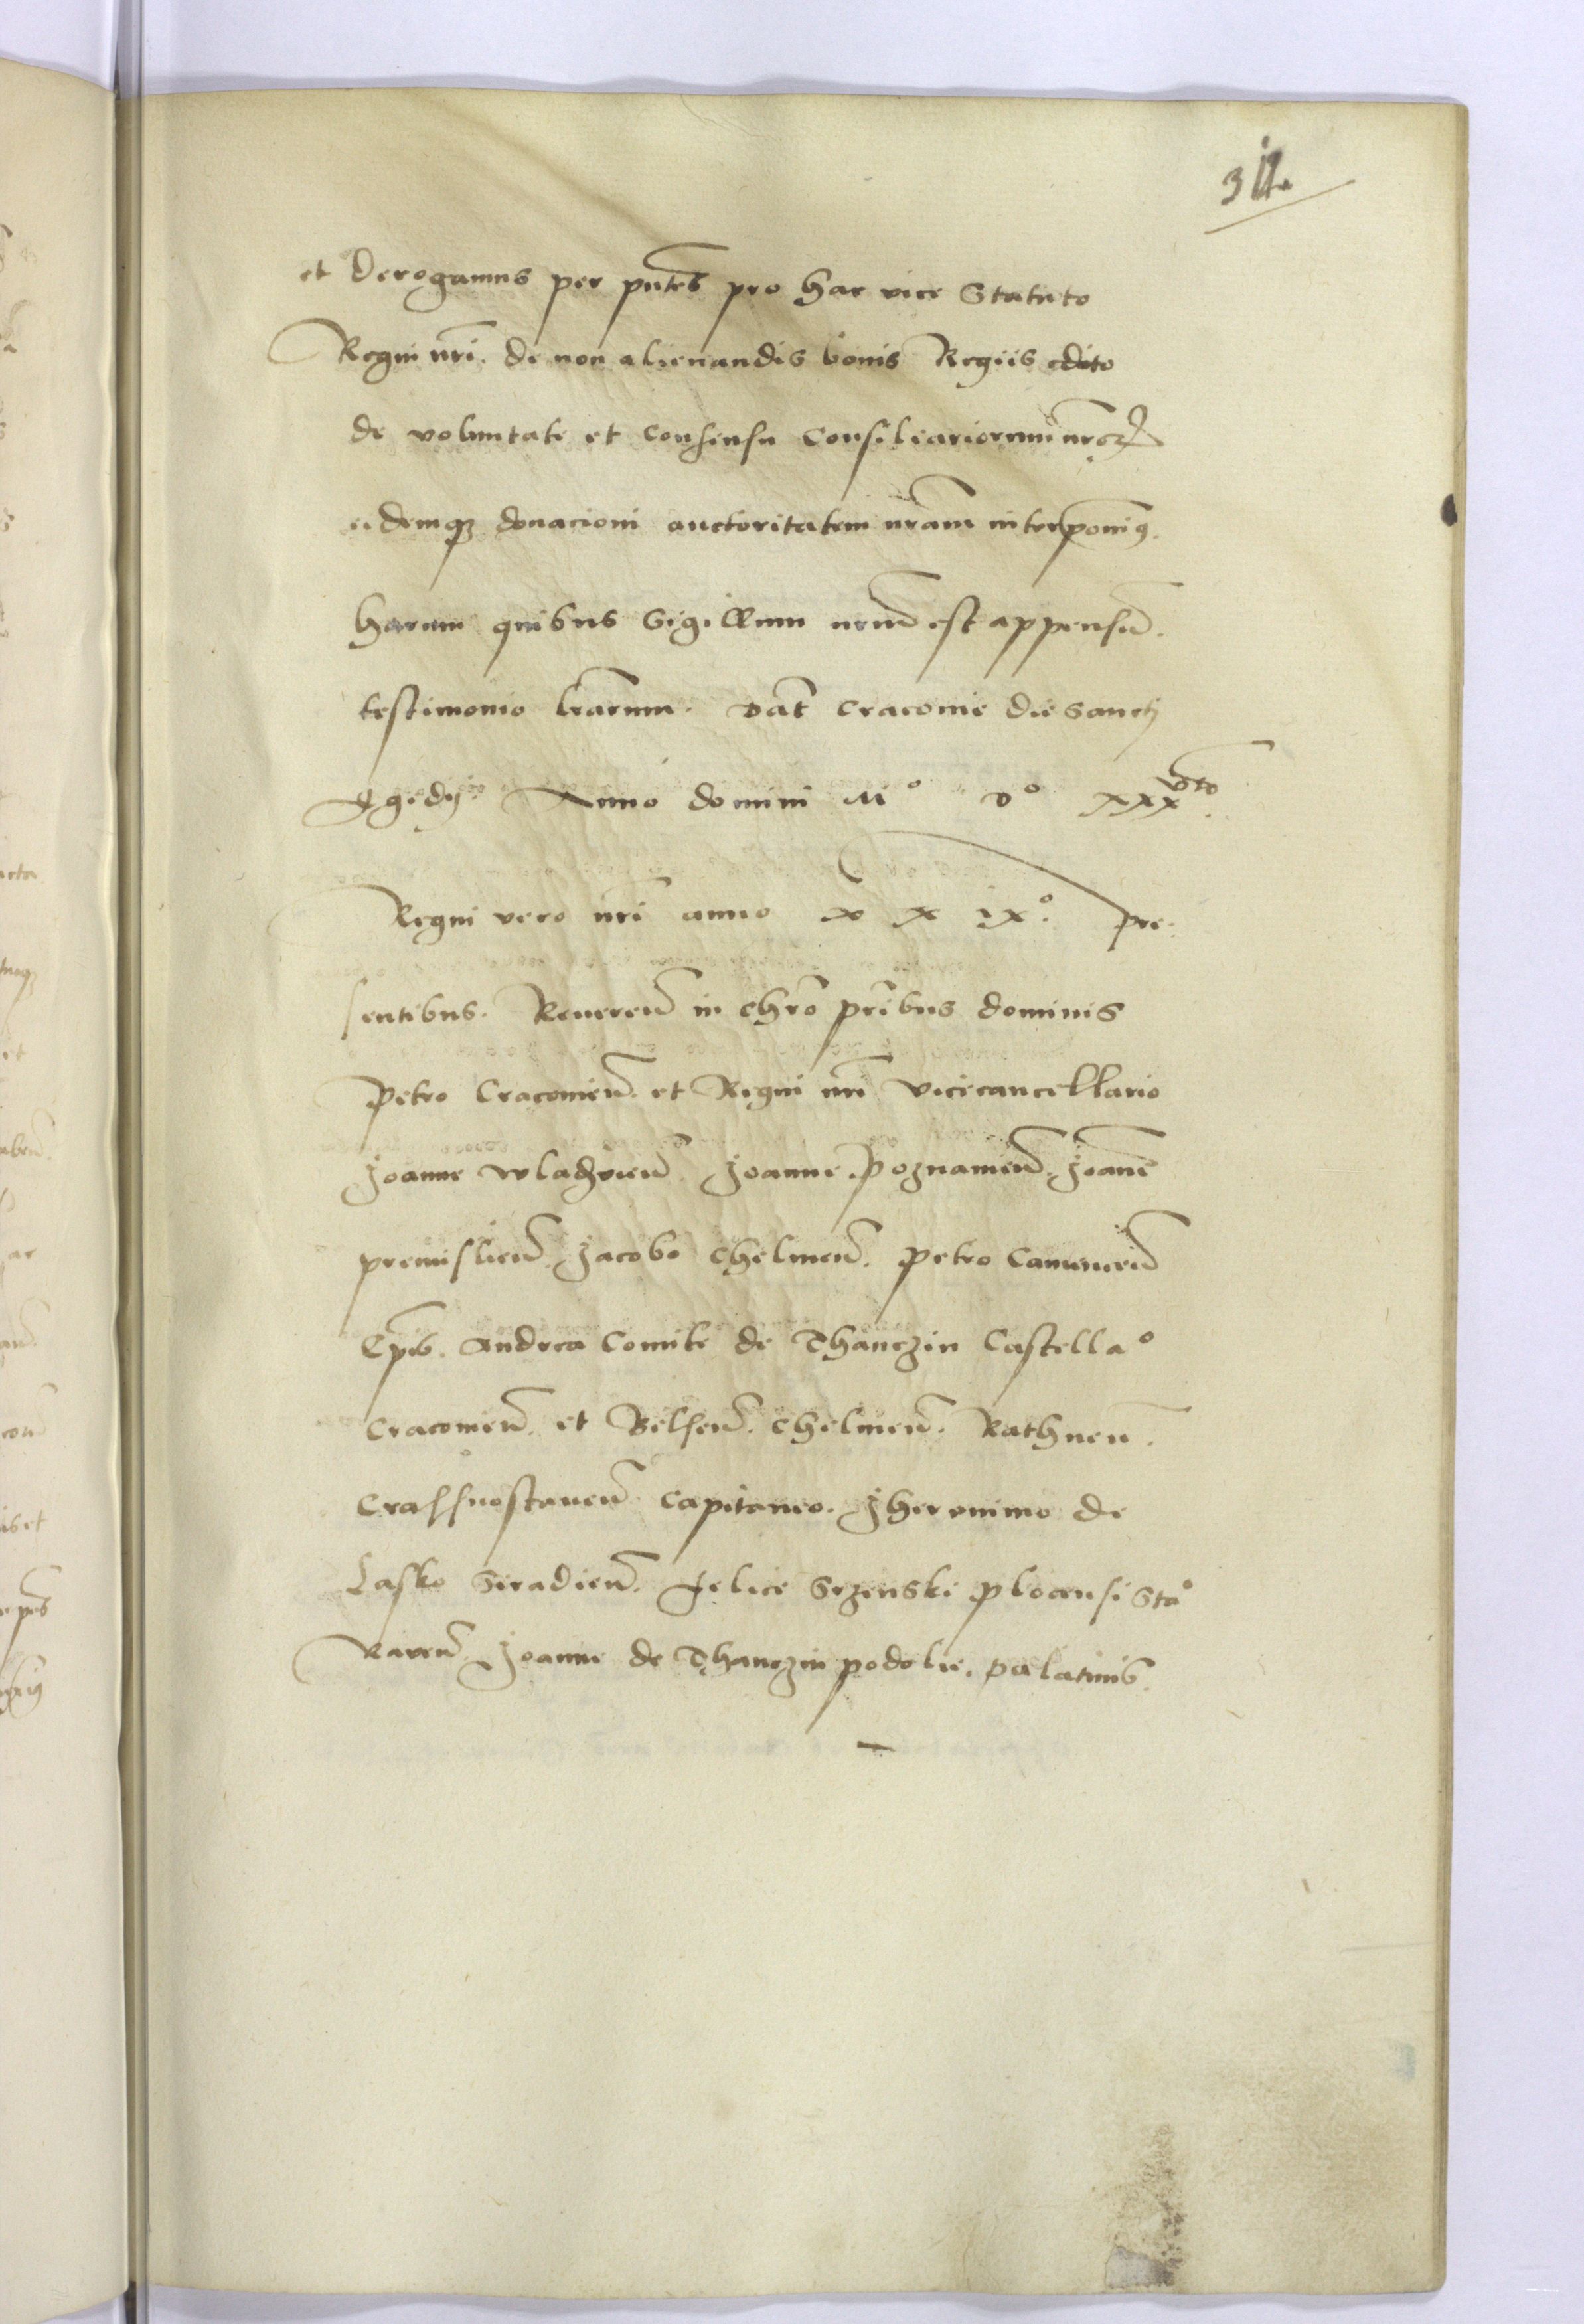 et derogamus per pñtes pro hac vice Statuto
Regni nr̃i. de non alienandis bonis Regiis edito
de voluntate et consensu Consiliariorum nrõꝝ
eidemqꝫ donacioni auctoritatem nrãm interponimꝰ.
harum quibus Sigillum nrũm est appensũ.
testimonio lrãrum. Dat̃ Cracovie die Sancti
Egidij. Anno domini Mº Dº xxxvto.
Regni vero nr̃i anno x x ixº. pre
sentibus. Reverẽn in Chrõ pr̃ibus dominis
Petro Cracovieñ. et Regni nr̃i Vicecancellario
Joanne Wladzvieñ. Joanne Poznanieñ. Joanñe
premislieñ. Jacobo Chelmeñ. Petro Cameneceñ
Ep̃is. Andrea Comite de Thanczin Castellaº
Cracovieñ. et Belseñ. Chelmeñ. Rathnen.
Crassnostavieñ. Capitaneo. Jheronimo de
Lasko Siradieñ. Felice Srzenski plocensi Staº
Raveñ. Joanne de Thanczin podolie. palatinis.